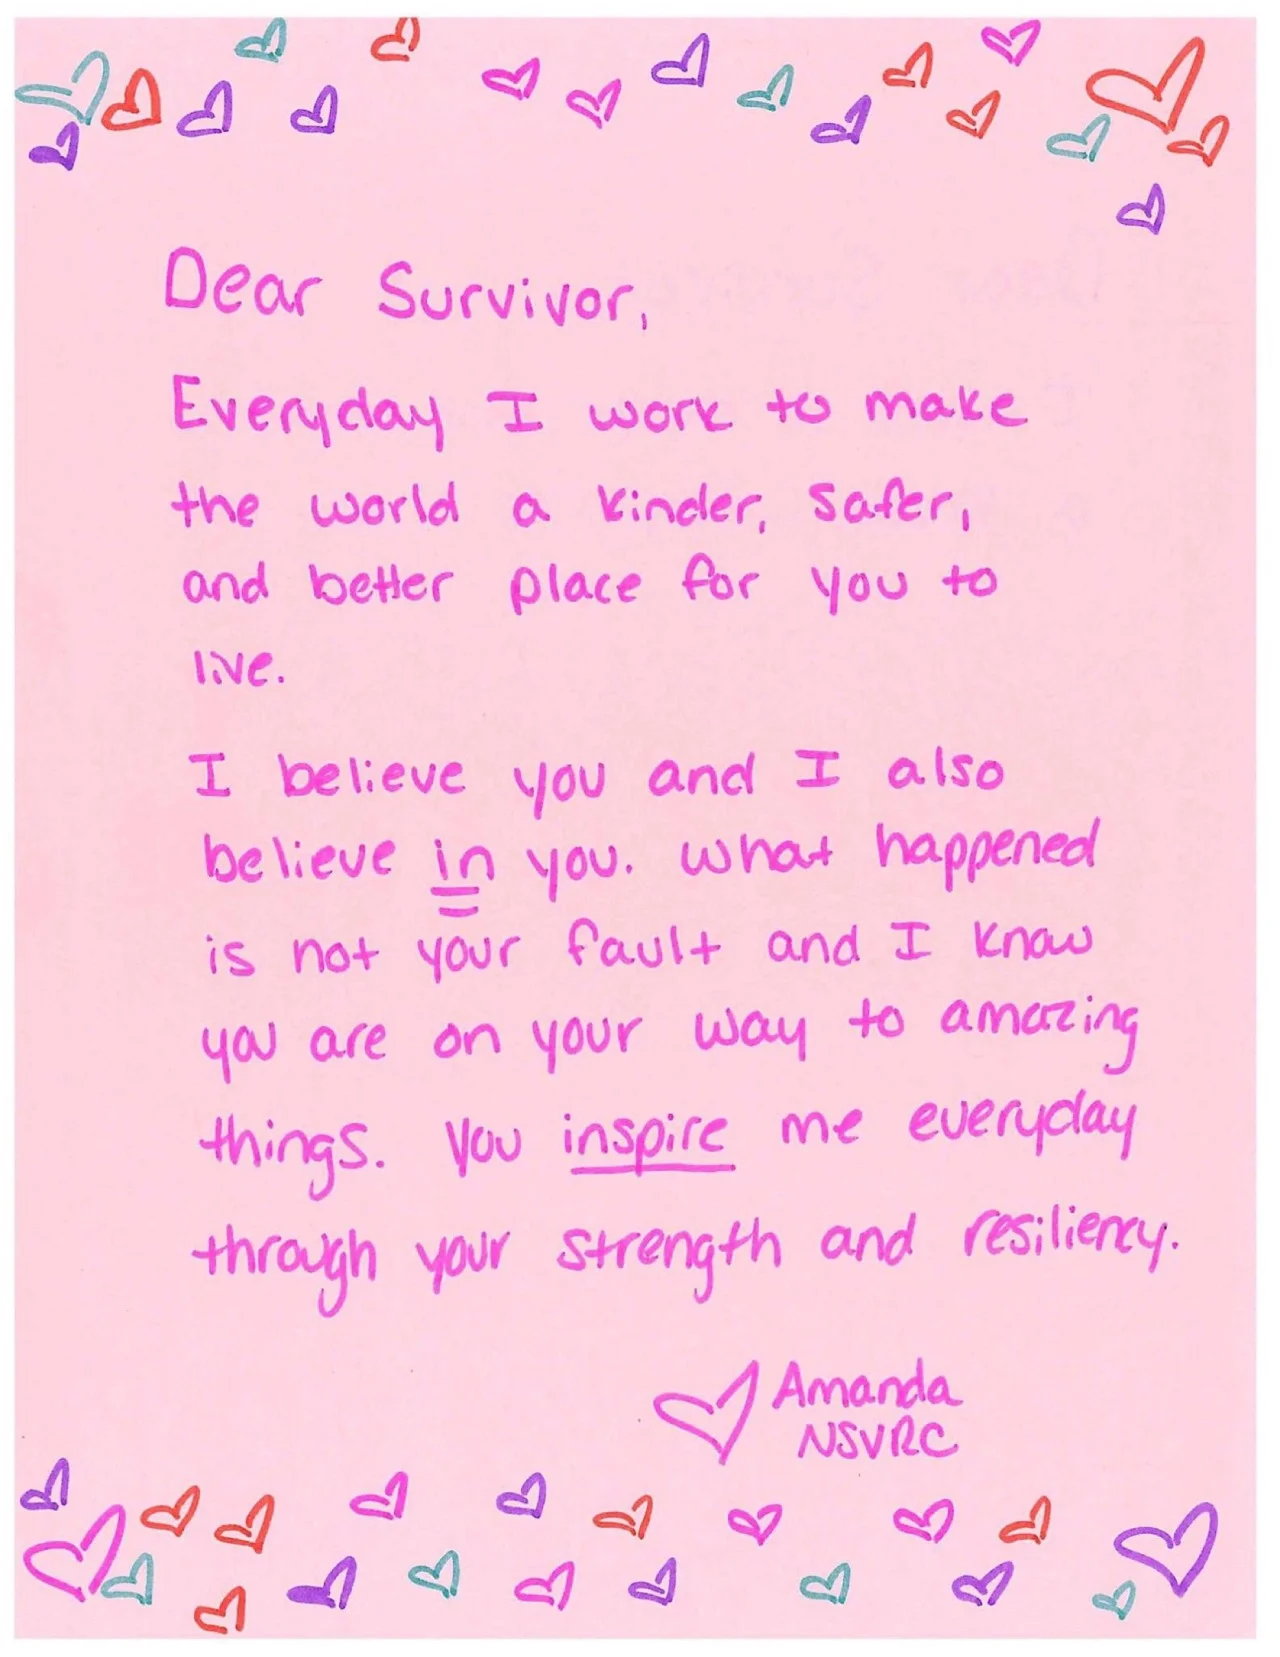 Dear Survivor,
Everyday I work to make
the world a kinder, safer,
and better place for you to
live.
I believe you and I also
believe in you. What happened
is not your fault and I know
you are on your way to amazing
things. You inspire me everyday
through your strength and resiliency.
Amanda
NSVRC